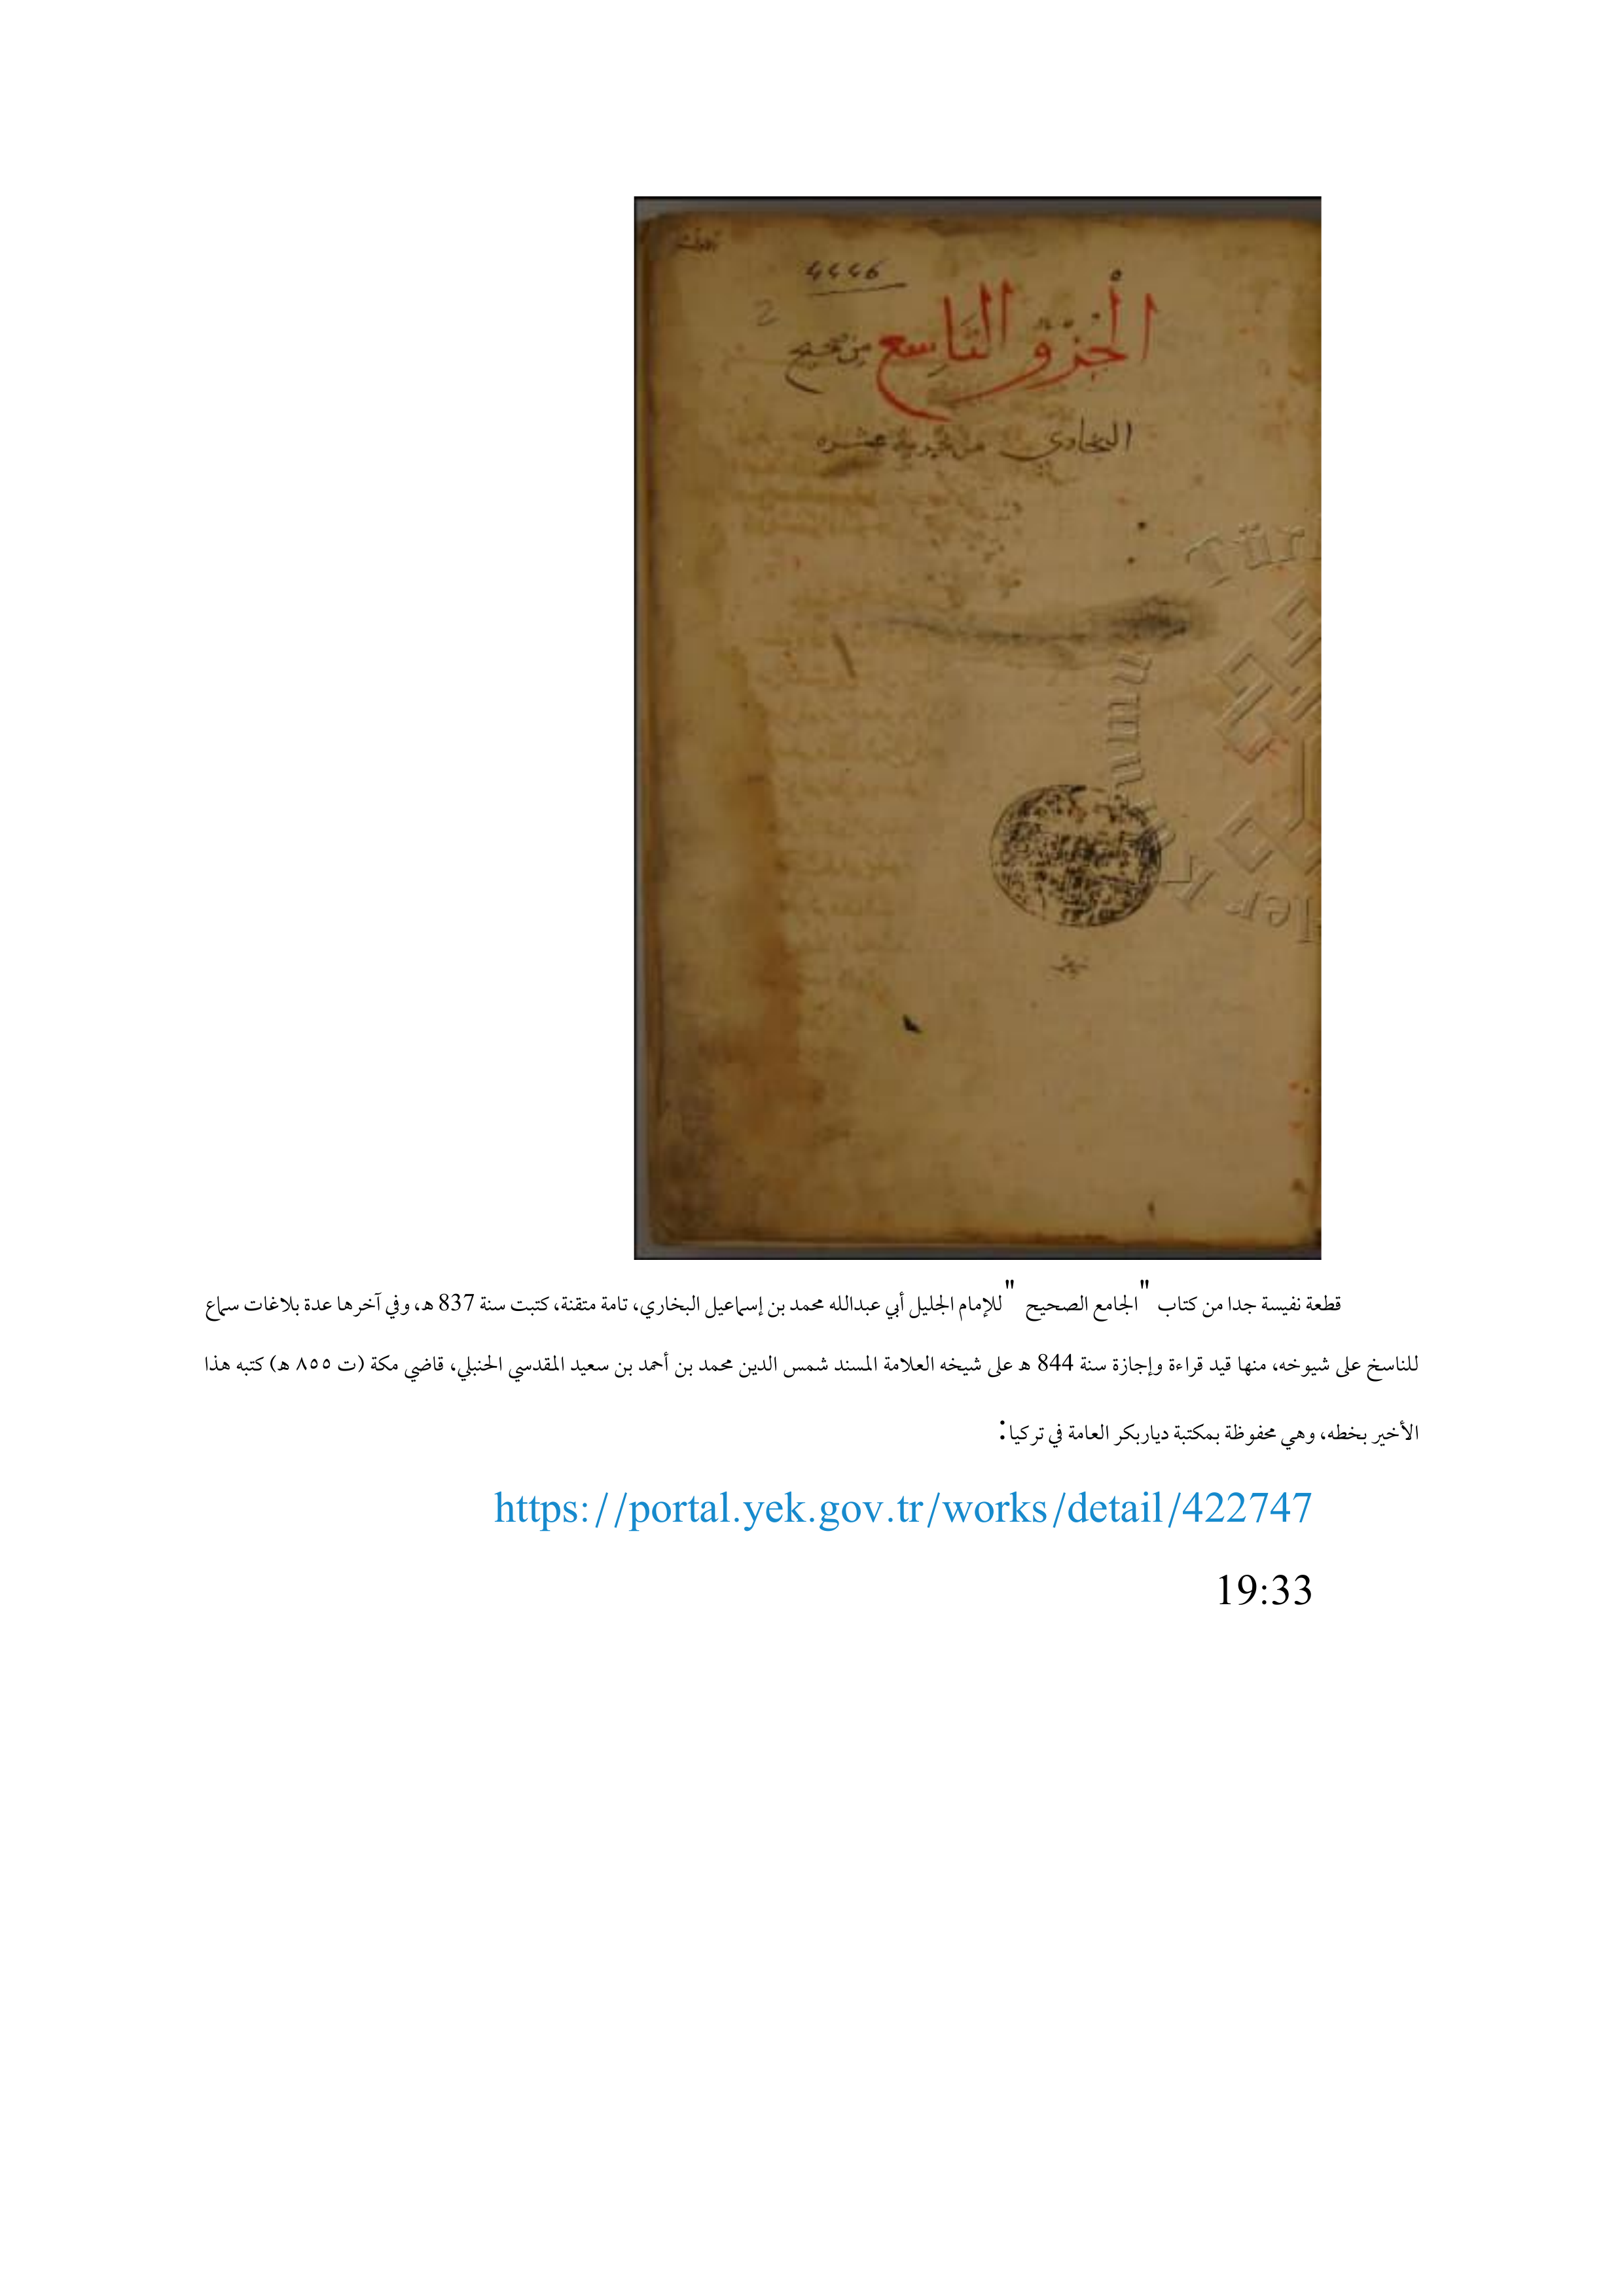 4446
2
الْجُزْؤُ التَّاسِع من صحيح
البخاري من تجزية عشره
Tür
قطعة نفيسة جدا من كتاب "الجامع الصحيح "للإمام الجليل أبي عبدالله محمد بن إسماعيل البخاري، تامة متقنة، كتبت سنة 837 هـ، وفي آخرها عدة بلاغات سماع
للناسخ على شيوخه، منها قيد قراءة وإجازة سنة 844 هـ على شيخه العلامة المسند شمس الدين محمد بن أحمد بن سعيد المقدسي الحنبلي، قاضي مكة (ت ٨٥٥ هـ) كتبه هذا
الأخير بخطه، وهي محفوظة بمكتبة دياربكر العامة في تركيا:
https://portal.yek.gov.tr/works/detail/422747
19:33